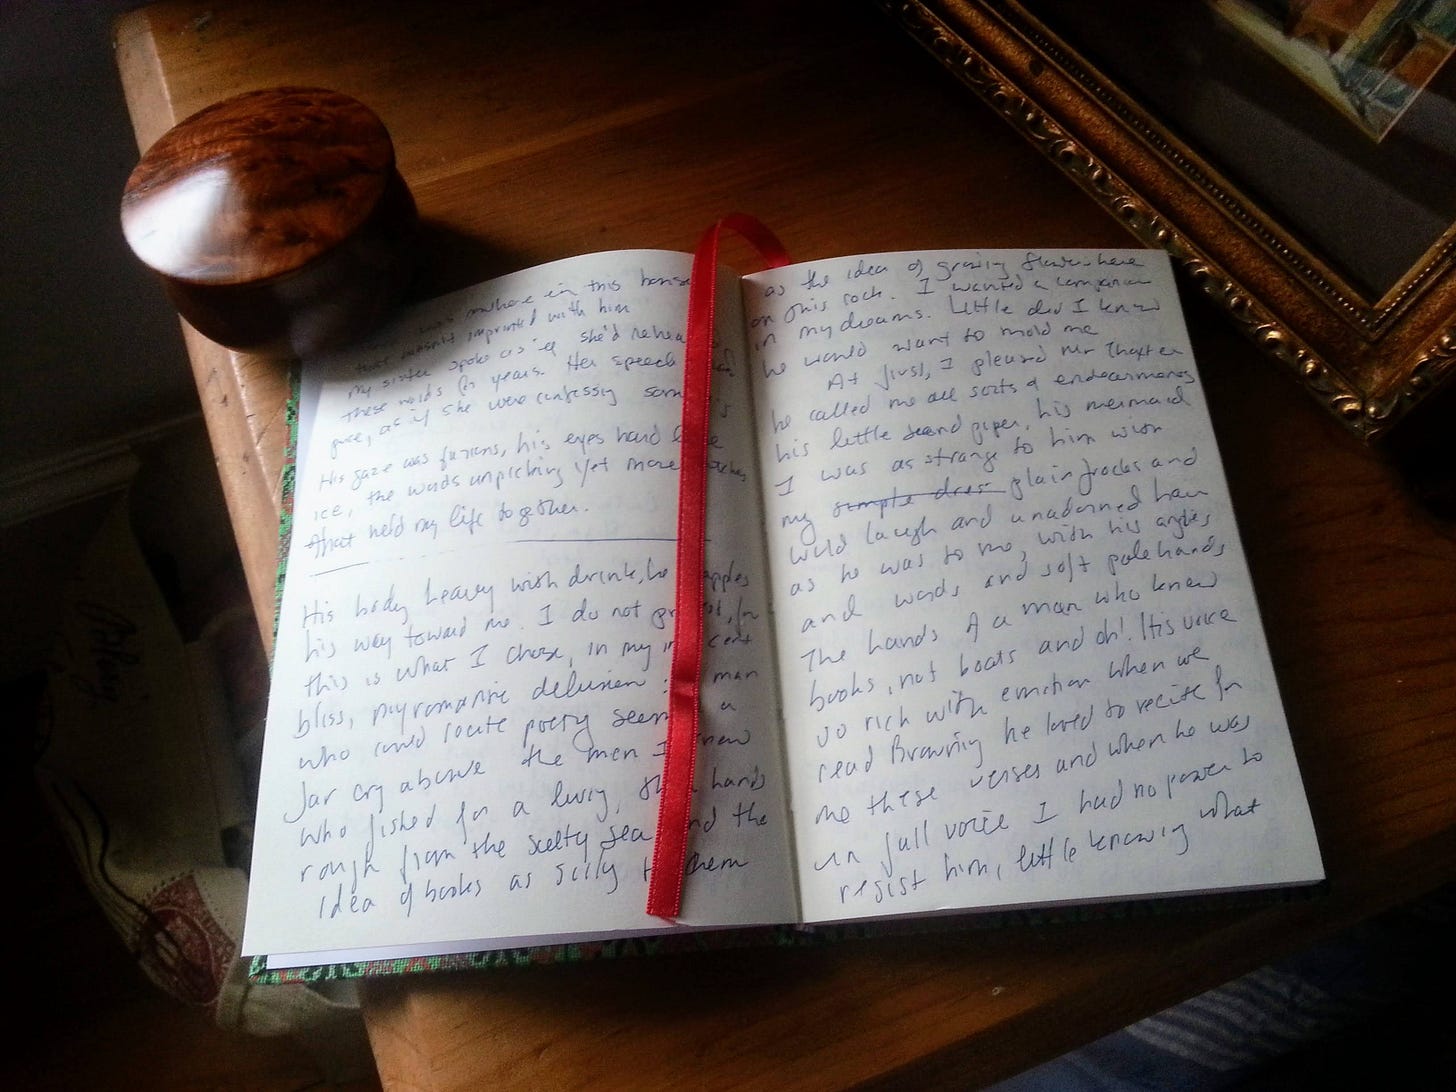 was nowhere in this house
that wasn't imprinted with him
My sister spoke as if she'd rehea
these words for years. Her speech
pure, as if she were confessing som
His gaze was furious, his eyes hard like
ice, the words unpicking yet more stitches
that held my life together.
His body heavy with drink, he apples
his way toward me. I do not pr st, for
this is what I chose, in my in cent
bliss, my romantic delusion: man
who could recite poetry seem a
far cry above the men I knew
who fished for a living, th hands
rough from the salty sea and the
idea of books as silly t them
as the idea of growing flowers here
on this rock. I wanted a companion
in my dreams. Little did I know
he would want to mold me
At first, I pleased Mr Thaxter
he called me all sorts of endearments
his little sand piper, his mermaid
I was as strange to him with
my simple dres plain frocks and
wild laugh and unadorned hair
as he was to me, with his angles
and words and soft pale hands
The hands of a man who knew
books, not boats and oh! His voice
so rich with emotion when we
read Browning he loved to recite for
me these verses and when he was
in full voice I had no power to
resist him, little knowing what